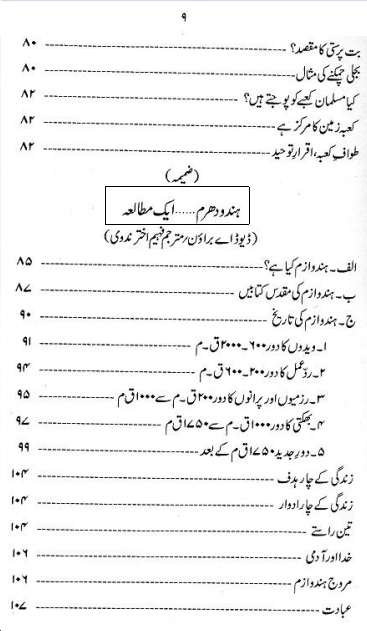 ۹
بت پرستی کا مقصد؟ ---------- ۸۰
بجلی چمکنے کی مثال ---------- ۸۰
کیا مسلمان کعبے کو پوجتے ہیں؟ ---------- ۸۲
کعبہ زمین کا مرکز ہے ---------- ۸۲
طوافِ کعبہ، اقرارِ توحید ---------- ۸۲
(ضمیمہ)
ہندو دھرم ...... ایک مطالعہ
(ڈیوڈ اے براؤن / مترجم فہیم اختر ندوی)
الف۔ ہندوازم کیا ہے؟ ---------- ۸۵
ب۔ ہندوازم کی مقدس کتابیں ---------- ۸۷
ج۔ ہندوازم کی تاریخ ---------- ۹۰
۱۔ ویدوں کا دور ۶۰۰۔۲۰۰۰ ق۔م ---------- ۹۱
۲۔ ردِّ عمل کا دور ۲۰۰۔۶۰۰ ق۔م ---------- ۹۴
۳۔ رزمیوں اور پرانوں کا دور ۲۰۰ ق۔م سے ۱۰۰۰ ق م ---------- ۹۵
۴۔ بھکتی کا دور ۱۰۰۰ ق۔م سے ۱۷۵۰ ق م ---------- ۹۷
۵۔ دورِ جدید ۱۷۵۰ ق م کے بعد ---------- ۹۹
زندگی کے چار ہدف ---------- ۱۰۴
زندگی کے چار ادوار ---------- ۱۰۴
تین راستے ---------- ۱۰۴
خدا اور آدمی ---------- ۱۰۶
مروج ہندوازم ---------- ۱۰۶
عبادت ---------- ۱۰۷